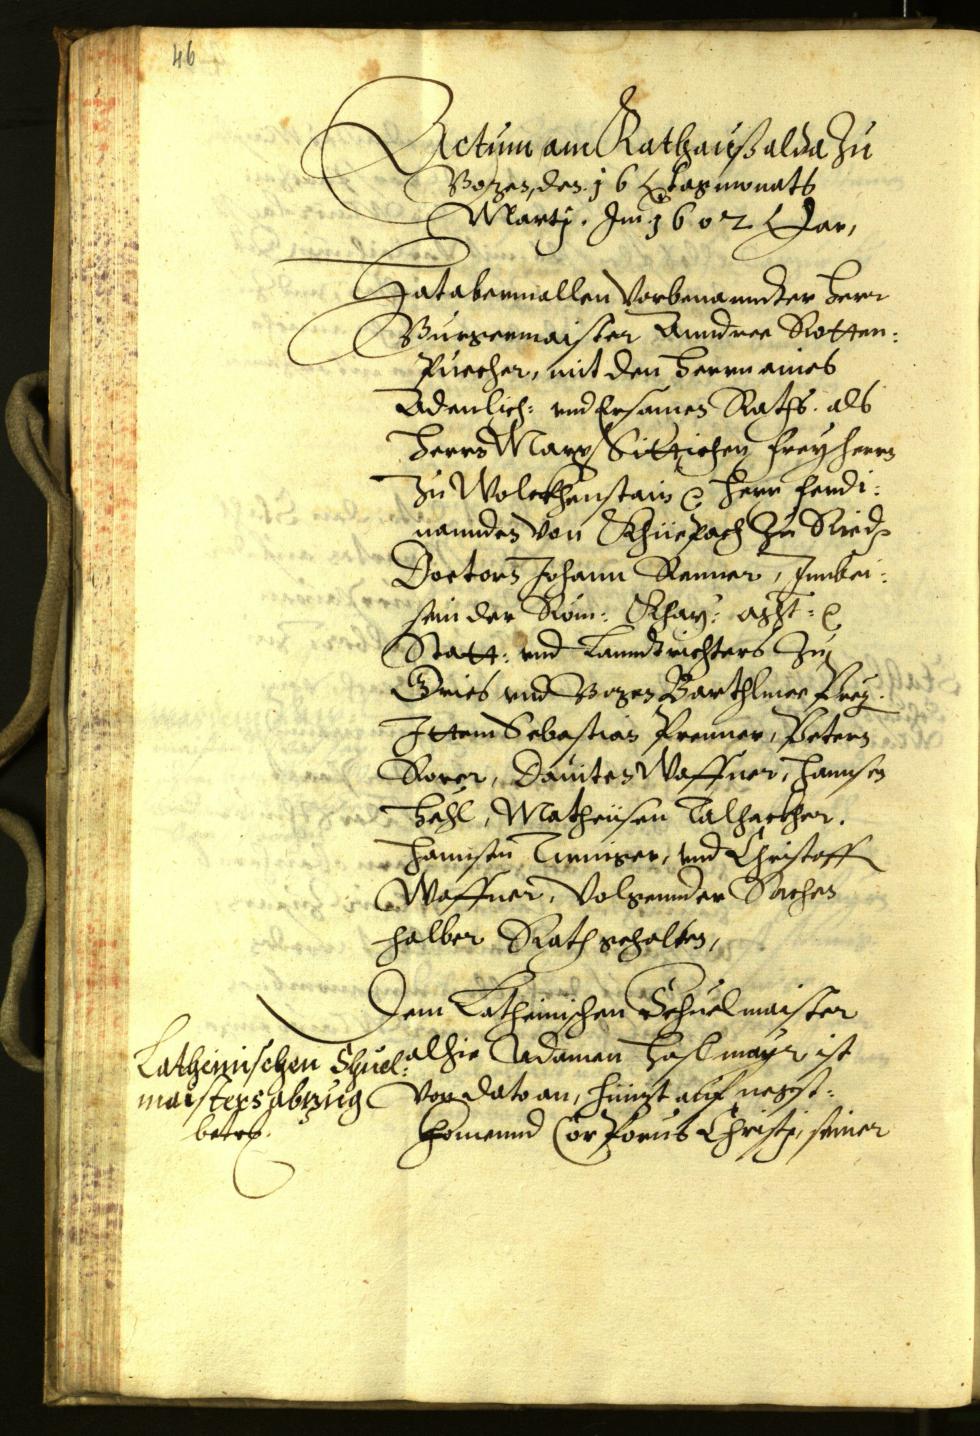 46
Actum am Rathauß alda zu
Bozen, den 16 Tag monats
Martij. Im 1602 Jar,
Hat abermallen vorbenanndter Herr
Burgermaister Anndree Rotten-
Puecher, mit den Herrn aines
Adenlich: und Ersamen Raths. als
Herrn Marx Sittichen Freyherrn
zu Wolckhenstain Herr Ferdi-
nannden von Khüepach zu Ried
Doctorn Johann Renner, Inn bei-
sein der Röm: Khay:
Statt: und Lanndtrichters zu
Gries und Bozen Barthlmee Prey.
Ittem Sebastian Prenner, Petern
Rorer, Dauiten Waffner, Hannsen
Hehl, Matheüsen Talhackher.
Hannsen und Christoff
Waffner, Volgennder Sachen
halber Rath gehalten,
Dem Latheinischen Schuelmaister
alhie Adamen Haslmayr ist
von dato an, hünzt auf negst-
khomennd Corporus Christj, seiner
Latheinischen Schuel-
maisters abzug
betrf.